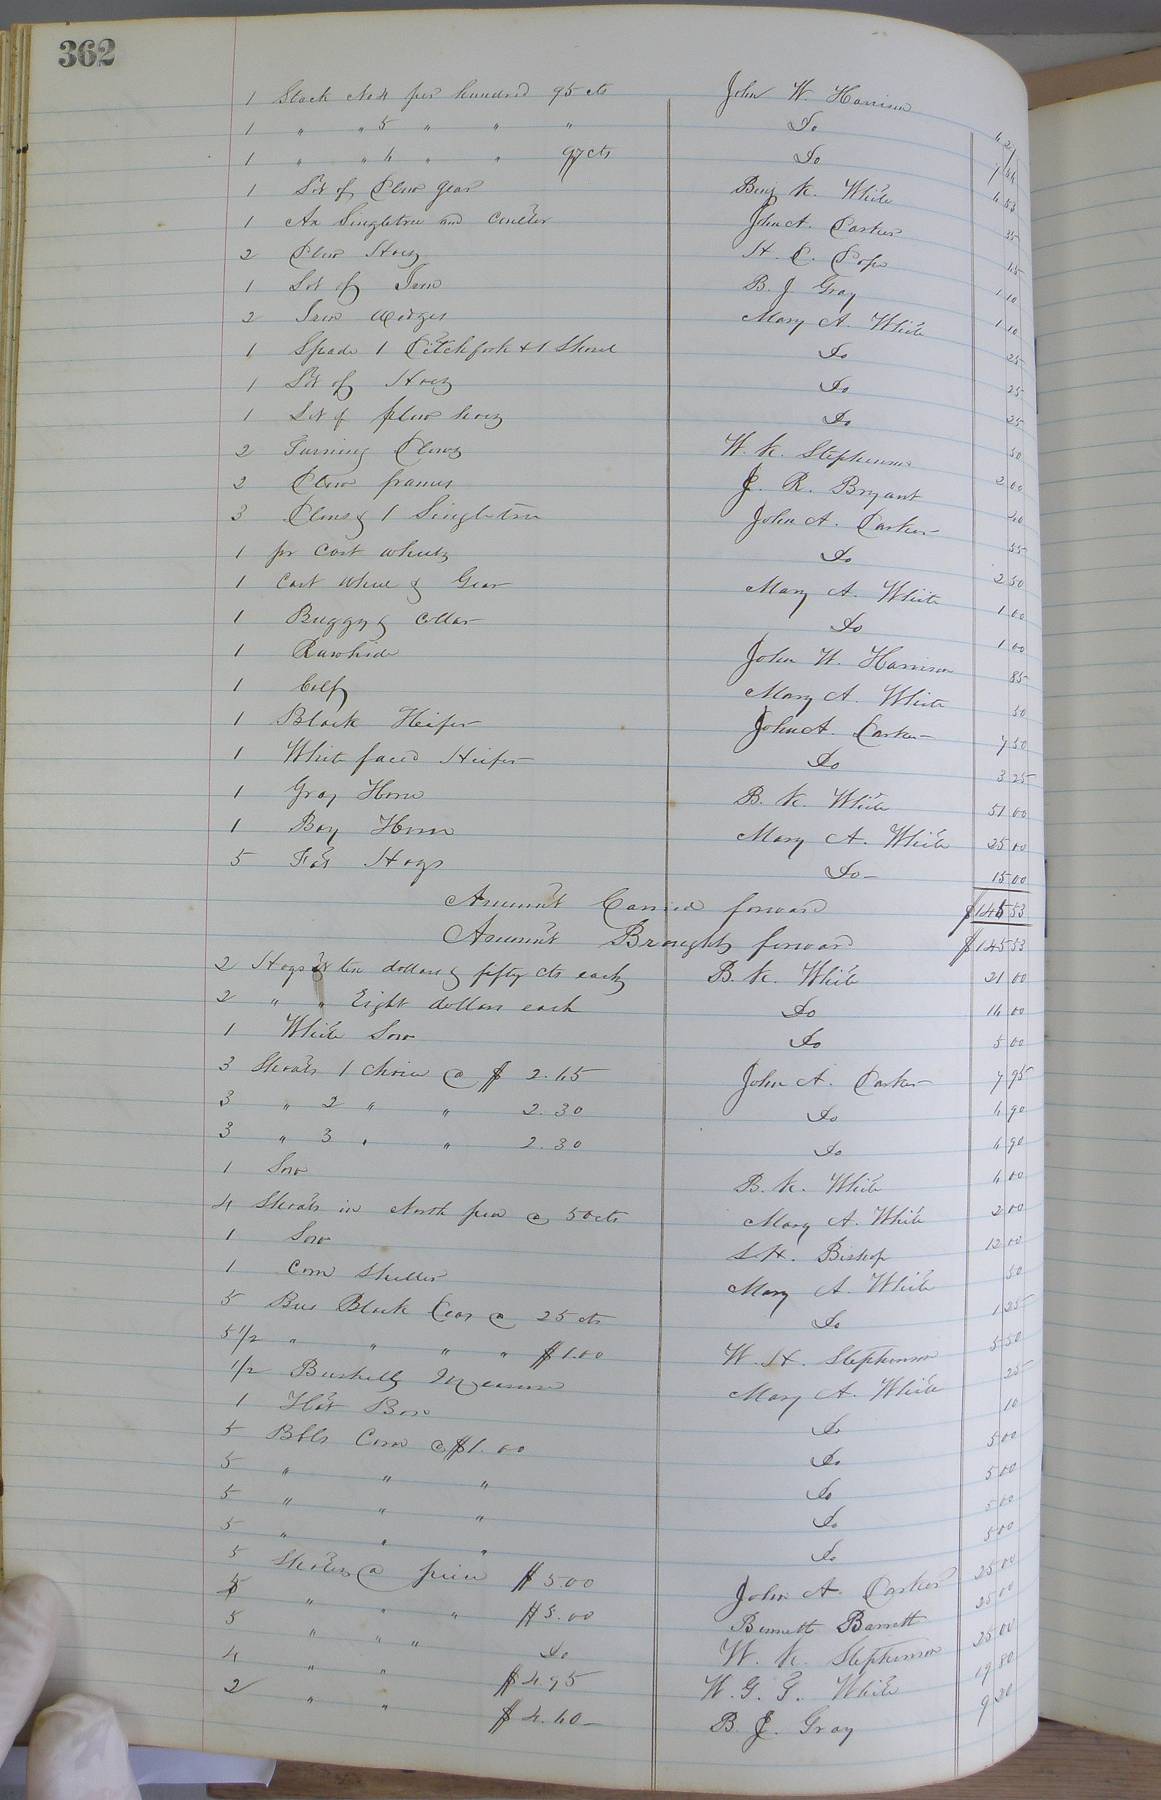 362
1 Stack No 4 per hundred 95 cts John W. Harrison 4 21
1 " " 5 " " " Do
1 " " 6 " " 97 cts Do
1 Lot of Plow Gear Benj K. White
1 Ax Singletree and Coulter John A. Parker 35
2 Plow Hoes H. C. Pope 45
1 Lot of Iron B. J. Gray 1 10
2 Iron Wedges Mary A. White 1 10
1 Spade 1 Pitchfork & 1 Shovel Do 25
1 Lot of Hoes Do 25
1 Lot of plow hoes Do 25
2 Turning Plows W. K. Stephenson 50
2 Plow frames J. R. Bryant 2 00
3 Plows & 1 Singletree John A. Parker 40
1 pr Cart Wheels Do 55
1 Cart Wheel & Gear Mary A. White 2 50
1 Buggy & Collar Do 1 00
1 Rawhide John W. Harrison 1 00
1 Calf Mary A. White 85
1 Black Heifer John A. Parker 50
1 White faced Heifer Do 7 50
1 Gray Horse B. K. White 3 25
1 Bay Horse Mary A. White 51 00
5 Fat Hogs Do 25 00
15 00
Amount Carried forward $145 53
Amount Brought forward $145 53
2 Hogs at ten dollars & fifty cts each B. K. White 21 00
2 " " Eight dollars each Do 16 00
1 White Sow Do 5 00
3 Shoats 1 choice @ $ 2.65 John A. Parker 7 95
3 " 2 " " 2.30 Do 6 90
3 " 3 " " 2.30 Do 6 90
1 Sow B. K. White 4 00
4 Shoats in North pen @ 50 cts Mary A. White 2 00
1 Sow S. H. Bishop 12 00
1 Corn Sheller Mary A. White 50
5 Bus Black Peas @ 25 cts Do 1 25
5 1/2 " " " " $1.00 W. H. Stephenson 5 50
1/2 Bushell Measure Mary A. White 25
1 Hat Box Do 10
5 Bbls Corn @ $1.00 Do 5 00
5 " " " Do 5 00
5 " " " Do 5 00
5 " " " Do 5 00
5 Shoats @ price $5.00 John A. Parker 25 00
5 " " " $5.00 Bennett Barrett 25 00
5 " " " Do W. K. Stephenson 25 00
4 " " $4.95 W. G. F. White 19 80
2 " " $4.60 B. J. Gray 9 20